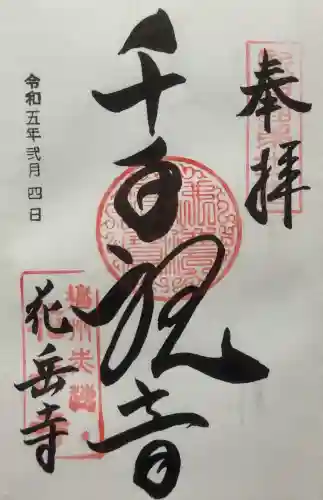 奉拝
千百観音
令和五年弐月四日
花岳寺